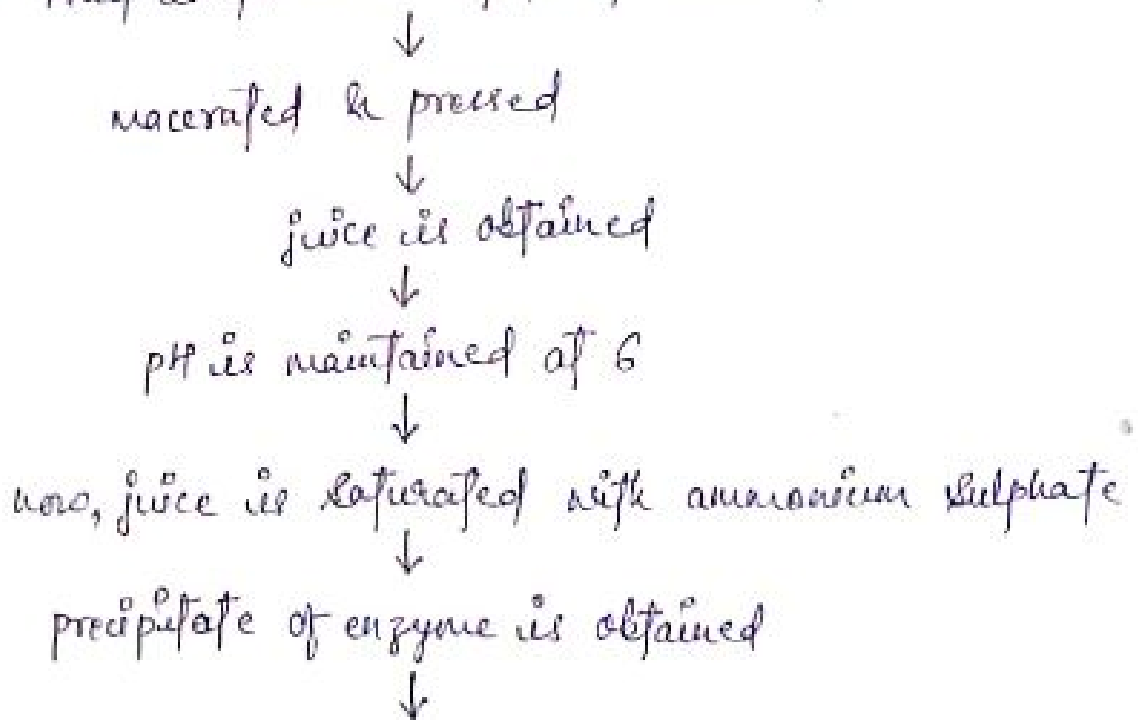 ↓
macerated & pressed
↓
juice is obtained
↓
pH is maintained at 6
↓
now, juice is saturated with ammonium sulphate
↓
precipitate of enzyme is obtained
↓